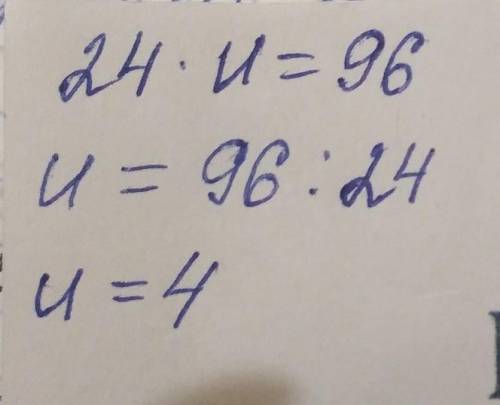 24 · u = 96
u = 96 : 24
u = 4